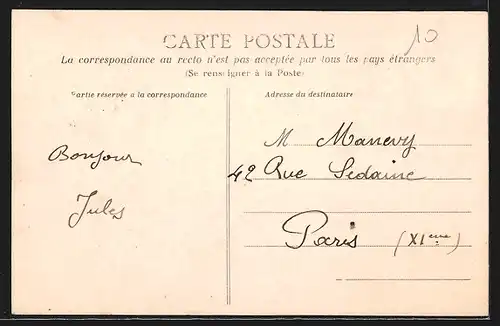 10
CARTE POSTALE
La correspondance au recto n'est pas acceptée par tous les pays étrangers
(Se renseigner à la Poste)
Partie réservée a la correspondance
Adresse du destinataire
Bonjour
Jules
M Manevy
42 Rue Sedaine
Paris (XIeme)